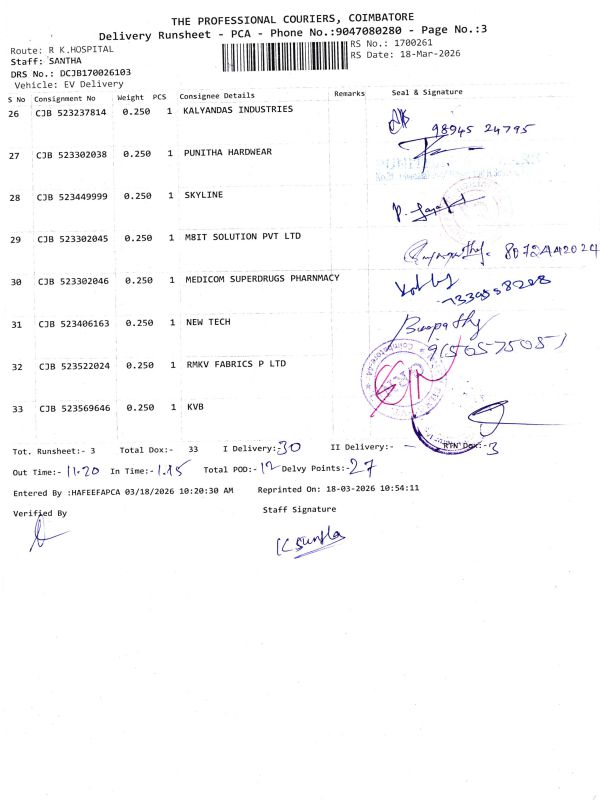 THE PROFESSIONAL COURIERS, COIMBATORE
Delivery Runsheet - PCA - Phone No.:9047080280 - Page No.:3
Route: R K.HOSPITAL
RS No.: 1700261
Staff: SANTHA
RS Date: 18-Mar-2026
DRS No.: DCJB170026103
Vehicle: EV Delivery
S No Consignment No Weight PCS Consignee Details Remarks Seal & Signature
26 CJB 523237814 0.250 1 KALYANDAS INDUSTRIES
98945 24795
27 CJB 523302038 0.250 1 PUNITHA HARDWEAR
28 CJB 523449999 0.250 1 SKYLINE
29 CJB 523302045 0.250 1 M8IT SOLUTION PVT LTD
8072442024
30 CJB 523302046 0.250 1 MEDICOM SUPERDRUGS PHARNMACY
31 CJB 523406163 0.250 1 NEW TECH
Boopathy
32 CJB 523522024 0.250 1 RMKV FABRICS P LTD
33 CJB 523569646 0.250 1 KVB
Tot. Runsheet:- 3 Total Dox:- 33 I Delivery:- 30 II Delivery:- - RTN Dox:-3
Out Time:- 11.20 In Time:- 1.15 Total POD:- 12 Delvy Points:- 27
Entered By :HAFEEFAPCA 03/18/2026 10:20:30 AM Reprinted On: 18-03-2026 10:54:11
Verified By Staff Signature